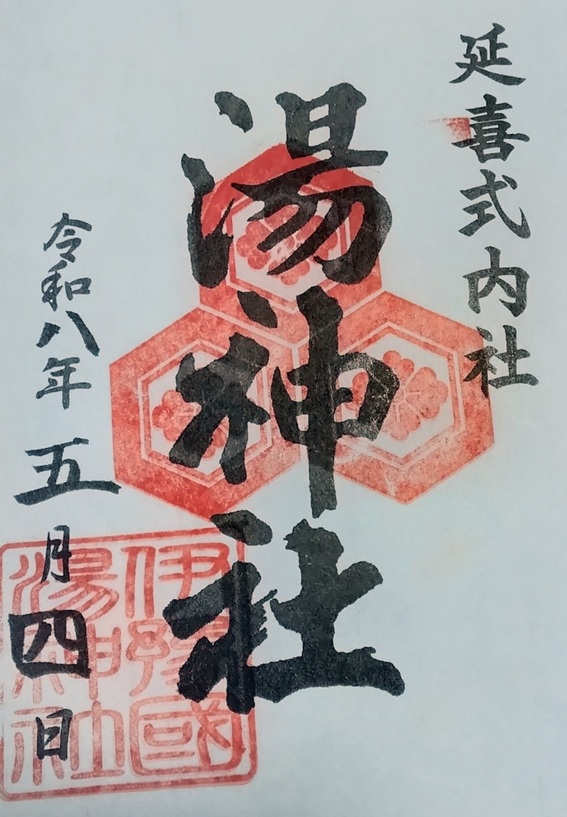 延喜式内社
湯神社
令和八年五月四日
伊豫國
湯神社